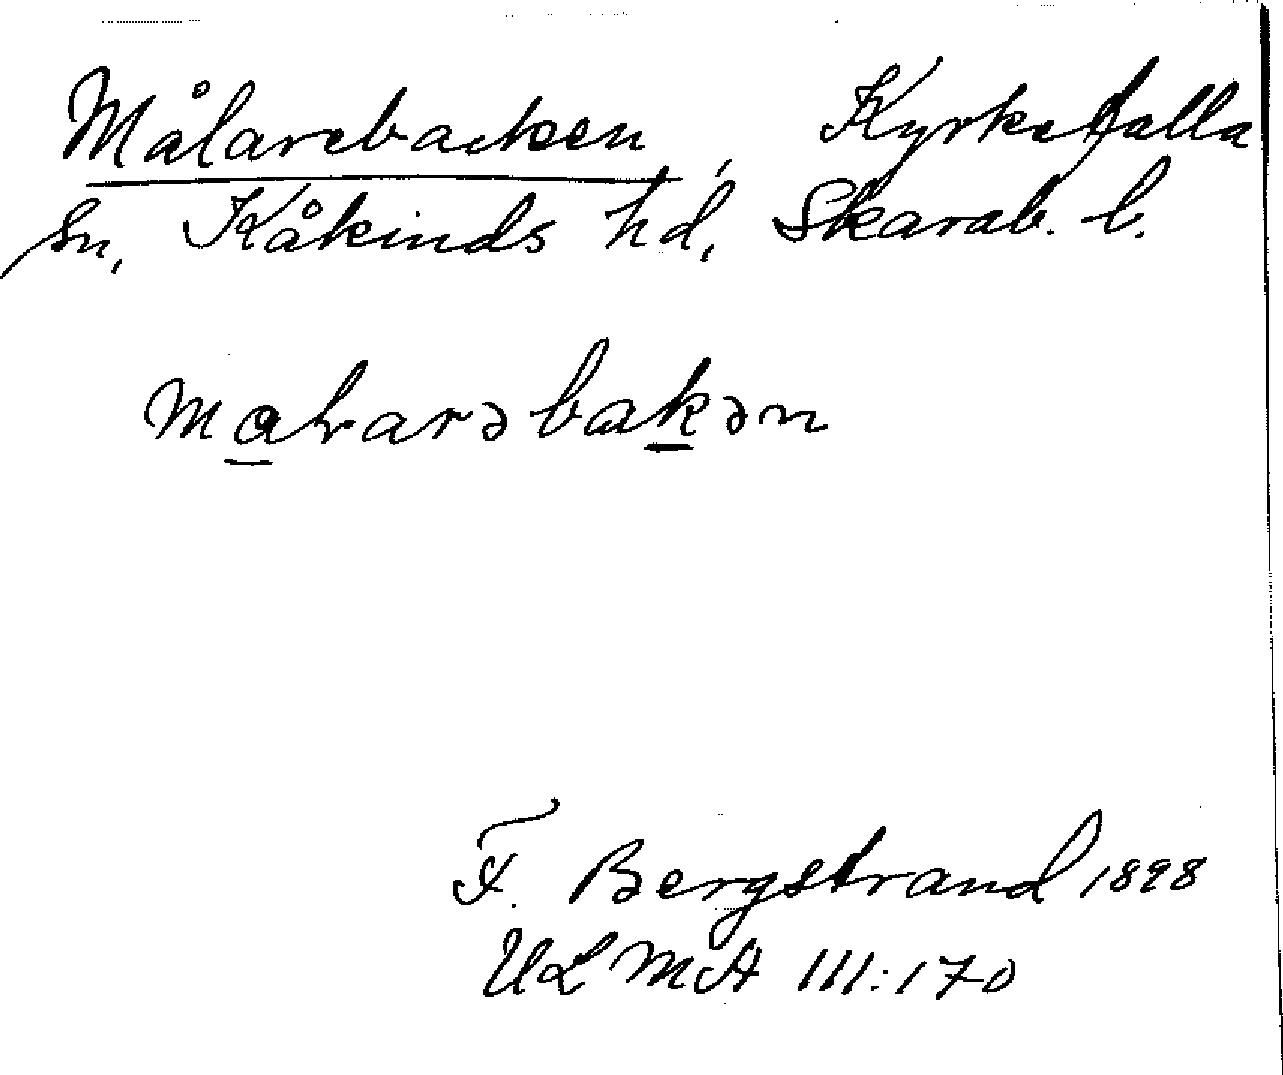 Målarebacken, Kyrkefalla
sn, Kåkinds hd, Skarab. l.
F. Bergstrand 1898
ULMA 111:170